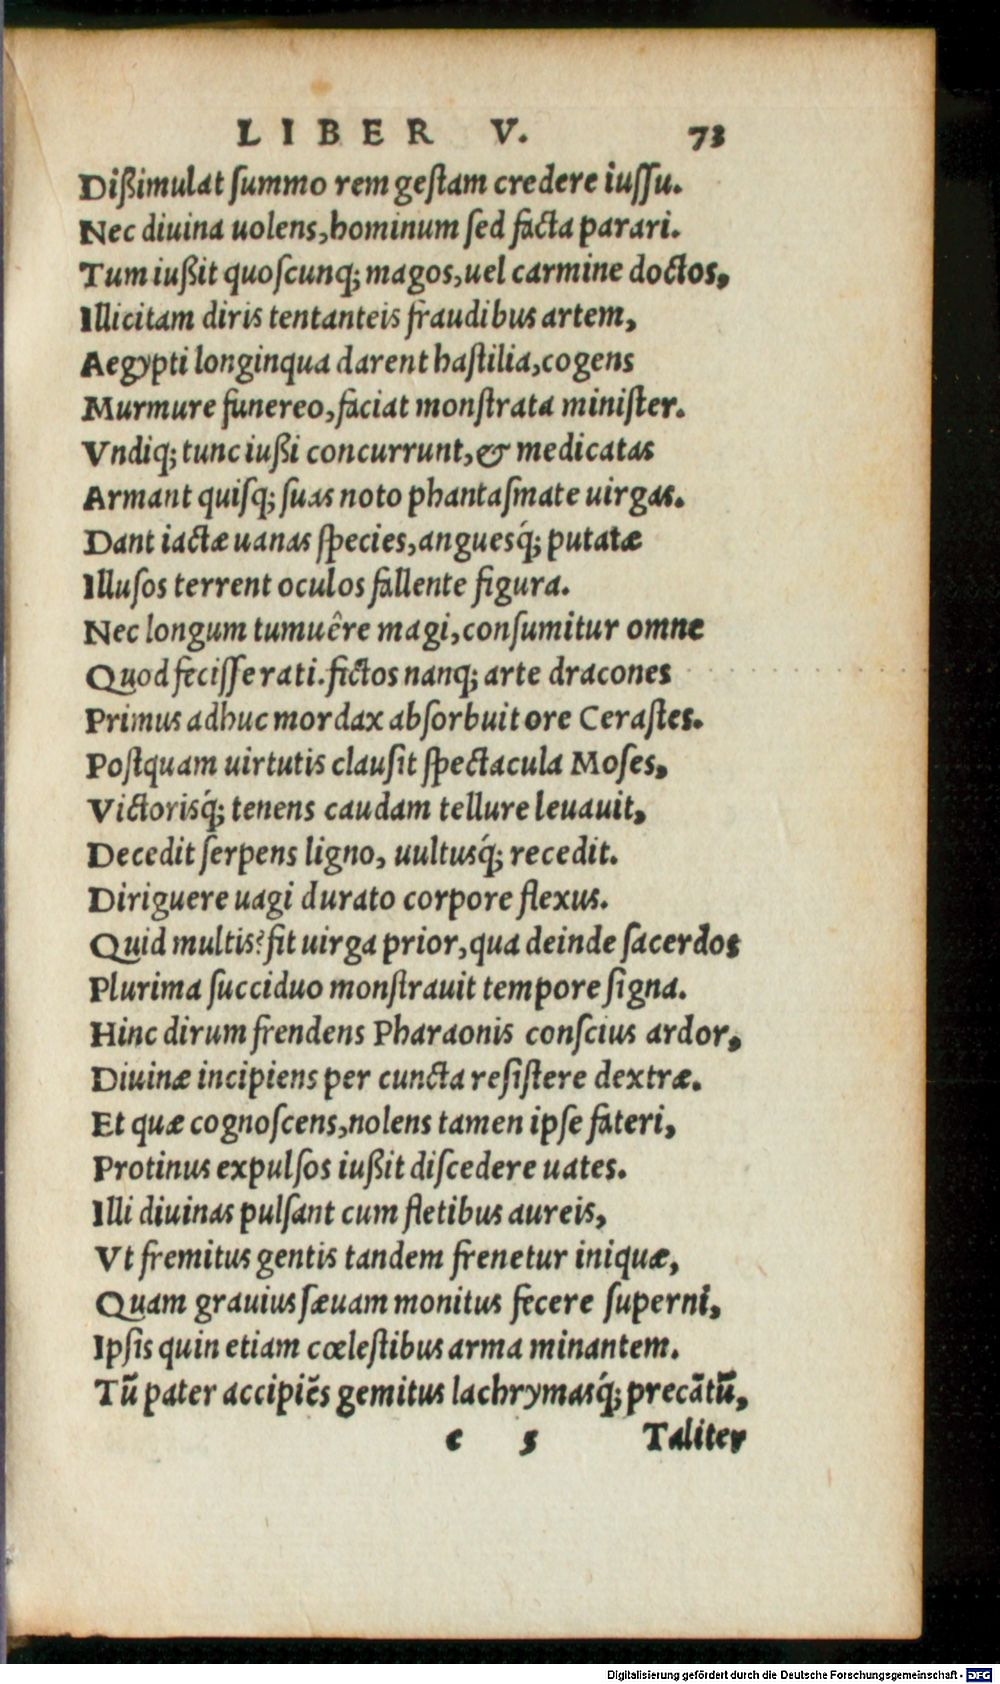 LIBER V. 73
Dißimulat ſummo rem geſtam credere iuſſu.
Nec diuina uolens, hominum ſed facta parari.
Tum iußit quoſcunq; magos, uel carmine doctos,
Illicitam diris tentanteis fraudibus artem,
Aegypti longinqua darent haſtilia, cogens
Murmure funereo, faciat monſtrata miniſter.
Vndiq; tunc iußi concurrunt, & medicatas
Armant quiſq; ſuas noto phantaſmate uirgas.
Dant iactæ uanas ſpecies, anguesq́; putatæ
Illuſos terrent oculos fallente figura.
Nec longum tumuêre magi, conſumitur omne
Quod feciſſe rati. fictos nanq; arte dracones
Primus adhuc mordax abſorbuit ore Ceraſtes.
Poſtquam uirtutis clauſit ſpectacula Moſes,
Victorisq́; tenens caudam tellure leuauit,
Decedit ſerpens ligno, uultusq́; recedit.
Diriguere uagi durato corpore flexus.
Quid multis? fit uirga prior, qua deinde ſacerdos
Plurima ſucciduo monſtrauit tempore ſigna.
Hinc dirum frendens Pharaonis conſcius ardor,
Diuinæ incipiens per cuncta reſiſtere dextræ.
Et quæ cognoſcens, nolens tamen ipſe fateri,
Protinus expulſos iußit diſcedere uates.
Illi diuinas pulſant cum fletibus aureis,
Vt fremitus gentis tandem frenetur iniquæ,
Quam grauius ſæuam monitus fecere ſuperni,
Ipſis quin etiam cœleſtibus arma minantem.
Tū pater accipiēs gemitus lachrymasq́; precātū,
e 5 Taliter
Digitalisierung gefördert durch die Deutsche Forschungsgemeinschaft - DFG